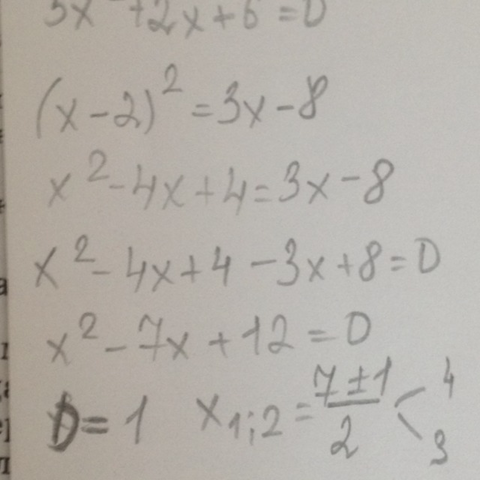 (x-2)² = 3x-8
x²-4x+4=3x-8
x²-4x+4-3x+8=0
x²-7x+12=0
D=1 x₁;₂ = (7±1)/2 < 4 3